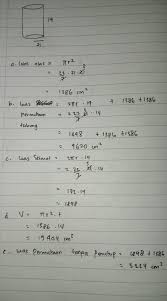 14
21
a. luas alas = πr²
= 22/7 · 21 · 21
= 1386 cm²
b. luas = 2πr · 14 + 1386 + 1386
permukaan = 2 · 22/7 · 14
tabung
= 1848 + 1386 + 1386
= 4620 cm²
c. luas = 2πr · 14
= 2 · 22/7 · 14
= 132 · 14
= 1848 cm²
d. V = πr² · t
= 1386 · 14
= 19404 cm³
e. luas permukaan tanpa penutup = 1848 + 1386
= 3234 cm²